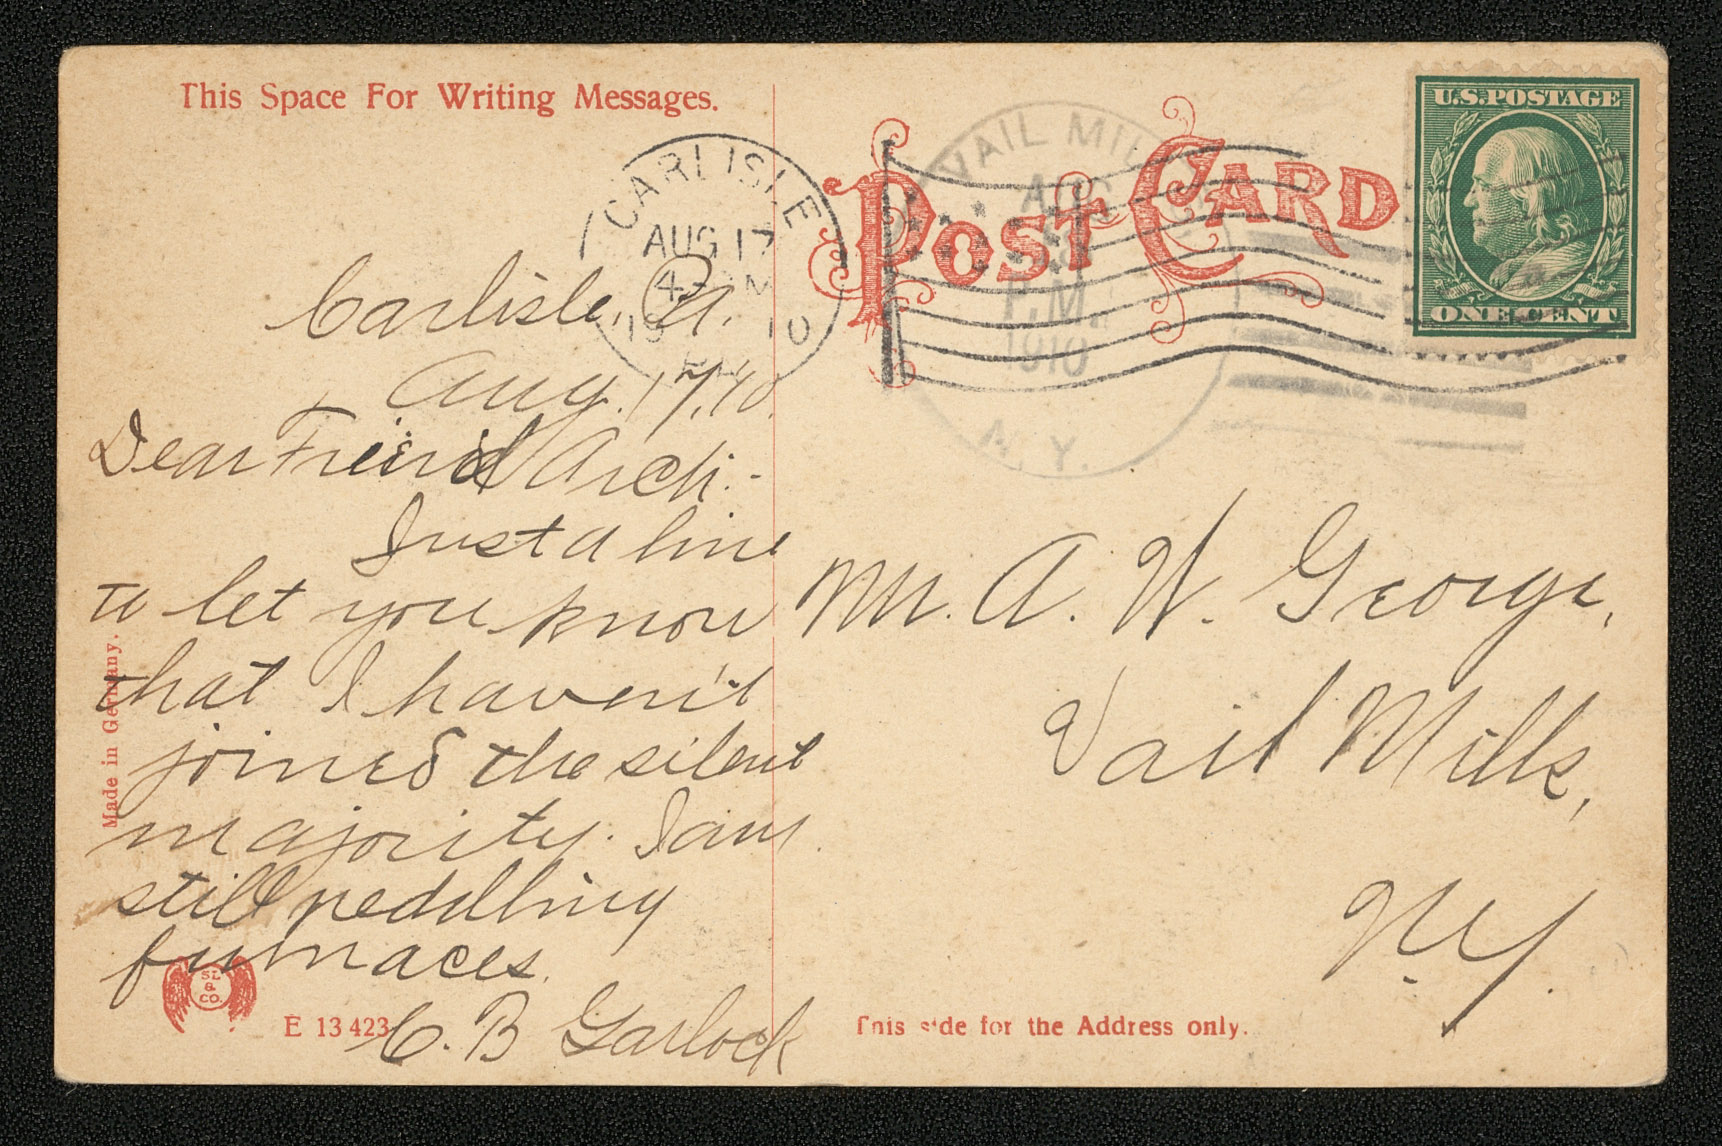 This Space For Writing Messages.
CARLISLE
AUG 17
4
1910
PA.
Carlisle, Pa.
Aug. 17, 10.
Dear Freind Arch:-
Just a line
to let you know
that I haven't
joined the silent
majority. I am
still peddling
furnaces.
C. B Garlock
Made in Germany.
SL
&
CO.
E 13 423
POST CARD
VAIL MILLS
AUG
18
P.M.
1910
N.Y.
U.S. POSTAGE
ONE CENT
Mr. A. W. George,
Vail Mills,
N.Y.
This side for the Address only.